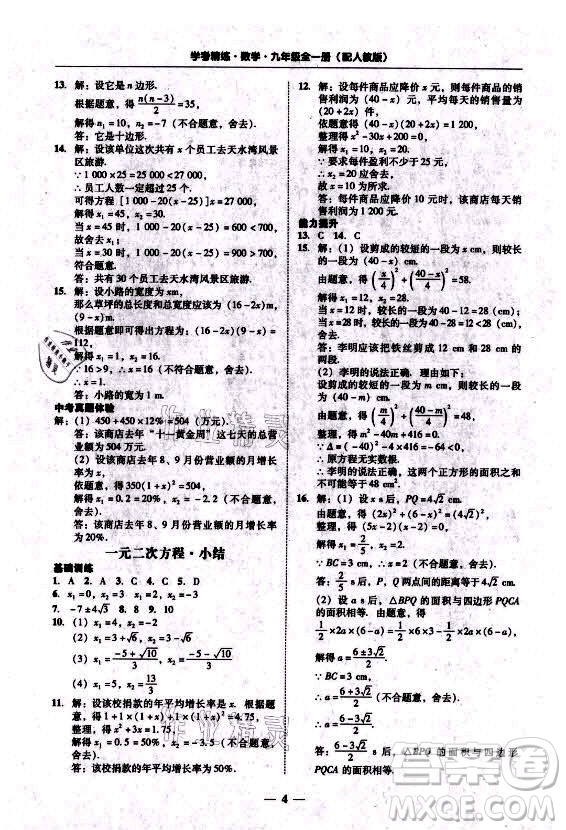 学考精练·数学·九年级全一册（配人教版）
13. 解：设它是 n 边形.
根据题意，得 n(n-3)/2 = 35.
解得 n₁=10，n₂=-7（不合题意，舍去）.
答：它是十边形.
14. 解：设该单位这次共有 x 个员工去天水湾风景
区旅游.
∵1 000×25=25 000<27 000，
∴员工人数一定超过 25 个.
可得方程 [1 000-20(x-25)]x=27 000.
解得 x₁=45，x₂=30.
当 x=45 时，1 000-20(x-25)=600<700，
故舍去 x=45；
当 x=30 时，1 000-20(x-25)=900>700，
符合题意.
答：共有 30 个员工去天水湾风景区旅游.
15. 解：设小路的宽度为 x m，
那么草坪的总长度和总宽度应为 (16-2x)，
(9-x) m.
根据题意即可得出方程为：(16-2x)(9-x)=
112，
解得 x₁=1，x₂=16.
∵16>9，∴x=16（不合题意，舍去），∴x=1.
答：小路的宽为 1 m.
中考真题体验
解：(1) 450+450×12%=504（万元）.
答：该商店去年“十一黄金周”这七天的总营
业额为 504 万元.
(2) 设该商店去年 8、9 月份营业额的月增长
率为 x.
解得 x₁=0.2，x₂=-2.2（不合题意，舍去）.
答：该商店去年 8、9 月份营业额的月增长率
为 20%.
一元二次方程·小结
基础训练
1. A 2. A 3. C 4. C 5. A
6. x₁=0，x₂=3
7. -7±4√3 8. 8 9. 10
10. (1) x₁=4，x₂=-2
(2) x₁=3+√6，x₂=3-√6
(3) x₁=(-5+√10)/3，x₂=(-5-√10)/3
(4) x₁=5，x₂=-5
11. 解：设该校捐款的年平均增长率是 x. 根据题
意，得 1+1×(1+x)+1×(1+x)²=4.75，
整理，得 x²+3x=1.75，
解得 x₁=0.5=50%，x₂=-3.5（不合题意，舍
去）.
答：该校捐款的年平均增长率为 50%.
12. 解：设每件商品应降价 x 元，则每件商品的销
售利润为 (40-x) 元，平均每天的销售量为
(20+2x) 件.
依题意得 (40-x)(20+2x)=1 200，
整理得 x²-30x+200=0，
解得 x₁=10，x₂=20.
∵要求每件盈利不少于 25 元，
∴x₂=20 应舍去，
∴x=10.
答：每件商品应降价 10 元时，该商店每天销售
利润为 1 200 元.
能力提升
13. C 14. C
15. 解：(1) 设剪成的较短的一段为 x cm，则较长
的一段为 (40-x) cm.
由题意，得 (x/4)²+((40-x)/4)²=58.
解得 x₁=12，x₂=28.
当 x=12 时，较长的为 40-12=28 (cm)；
当 x=28 时，较长的为 40-28=12<28（舍去）.
答：李明应该把铁丝剪成 12 cm 和 28 cm 的
两段.
(2) 李明的说法正确. 理由如下：
设剪成的较短的一段为 m cm，则较长的一段
为 (40-m) cm.
由题意，得 (m/4)²+((40-m)/4)²=48.
整理，得 m²-40m+416=0.
∵Δ=(-40)²-4×416=-64<0，
∴原方程无实数根.
∴李明的说法正确，这两个正方形的面积之和
不可能等于 48 cm².
16. 解：(1) 设 x s 后，PQ=4√2 cm.
由题意，得 (2x)²+(6-x)²=(4√2)².
整理，得 (5x-2)(x-2)=0.
解得 x₁=2/5，x₂=2.
∵BC=3 cm，∴2x<3，∴x=2（不合题意，舍去）.
答：2/5 s 后，P、Q 两点间的距离等于 4√2 cm.
(2) 设 a s 后，△BPQ 的面积与四边形 PQCA
的面积相等. 由题意，得
1/2×2a×(6-a)=1/2×6×3-1/2×2a×(6-a).
解得 a=(6±3√2)/2.
∵BC=3 cm，
∴a=(6+3√2)/2（不合题意，舍去）.
∴a=(6-3√2)/2.
答：(6-3√2)/2 s 后，△BPQ 的面积与四边形
PQCA 的面积相等.
4
作业精灵
作业精灵
MXQE.COM